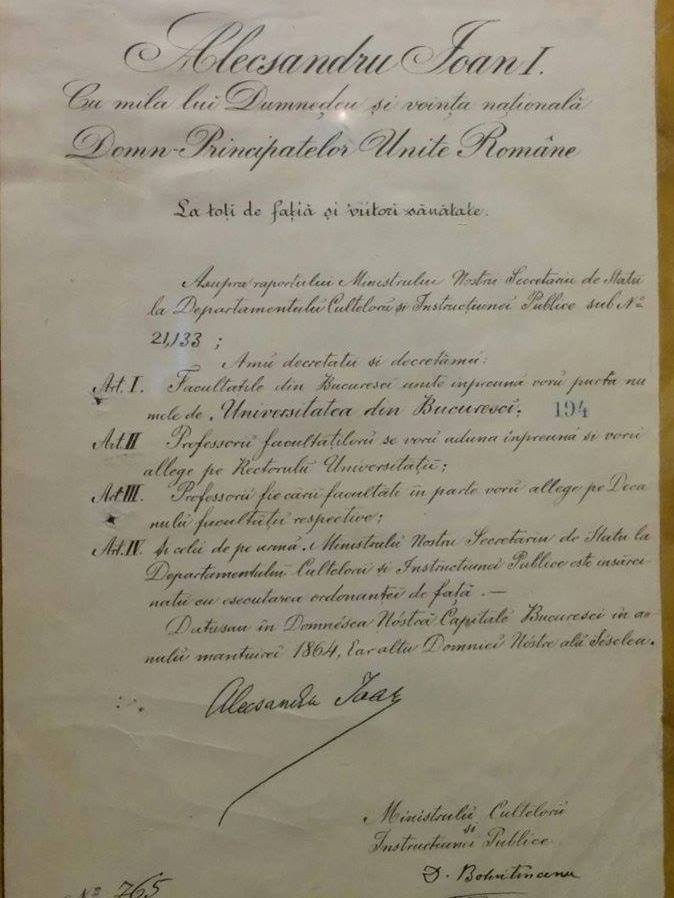 Alecsandru Joan I.
Cu mila lui Dumnedeu și voința națională
Domn Principatelor Unite Române
La toți de fațiă și viitori sănătate.
Asupra raportului Ministrului Nostru Secretariu de Statu
la Departamentulŭ Cultelorŭ și Instrucțiunei Publice sub Nº
21,133 ;
Amŭ decretatu si decretămŭ:
Art. I. Facultatile din Bucuresci unite inpreună vorŭ purta nu
mele de „Universitatea din Bucuresci. 194
Art. II Professorii facultațilorŭ se vorŭ aduna inpreună si vorŭ
allege pe Rectorulŭ Universitații;
Art. III. Professorii fie cării facultăti in parte vorŭ allege pe Deca
nulŭ facultății respective;
Art. IV. Și celŭ de pe urmă. Ministrulŭ Nostru Secretariu de Statu la
Departamentulŭ Cultelorŭ si Instructiunei Publice este insărci
natŭ cu esecutarea ordonantei de față. —
Datusau in Domnésca Nóstră Capitală Bucuresci in a-
nulŭ mantuirei 1864, Ear altu Domniei Nóstre alŭ Séselea.
Alecsandru Joan
Ministrulŭ Cultelorŭ
si
Instructiunii Publice
D. Bolintineanu
Nº 765